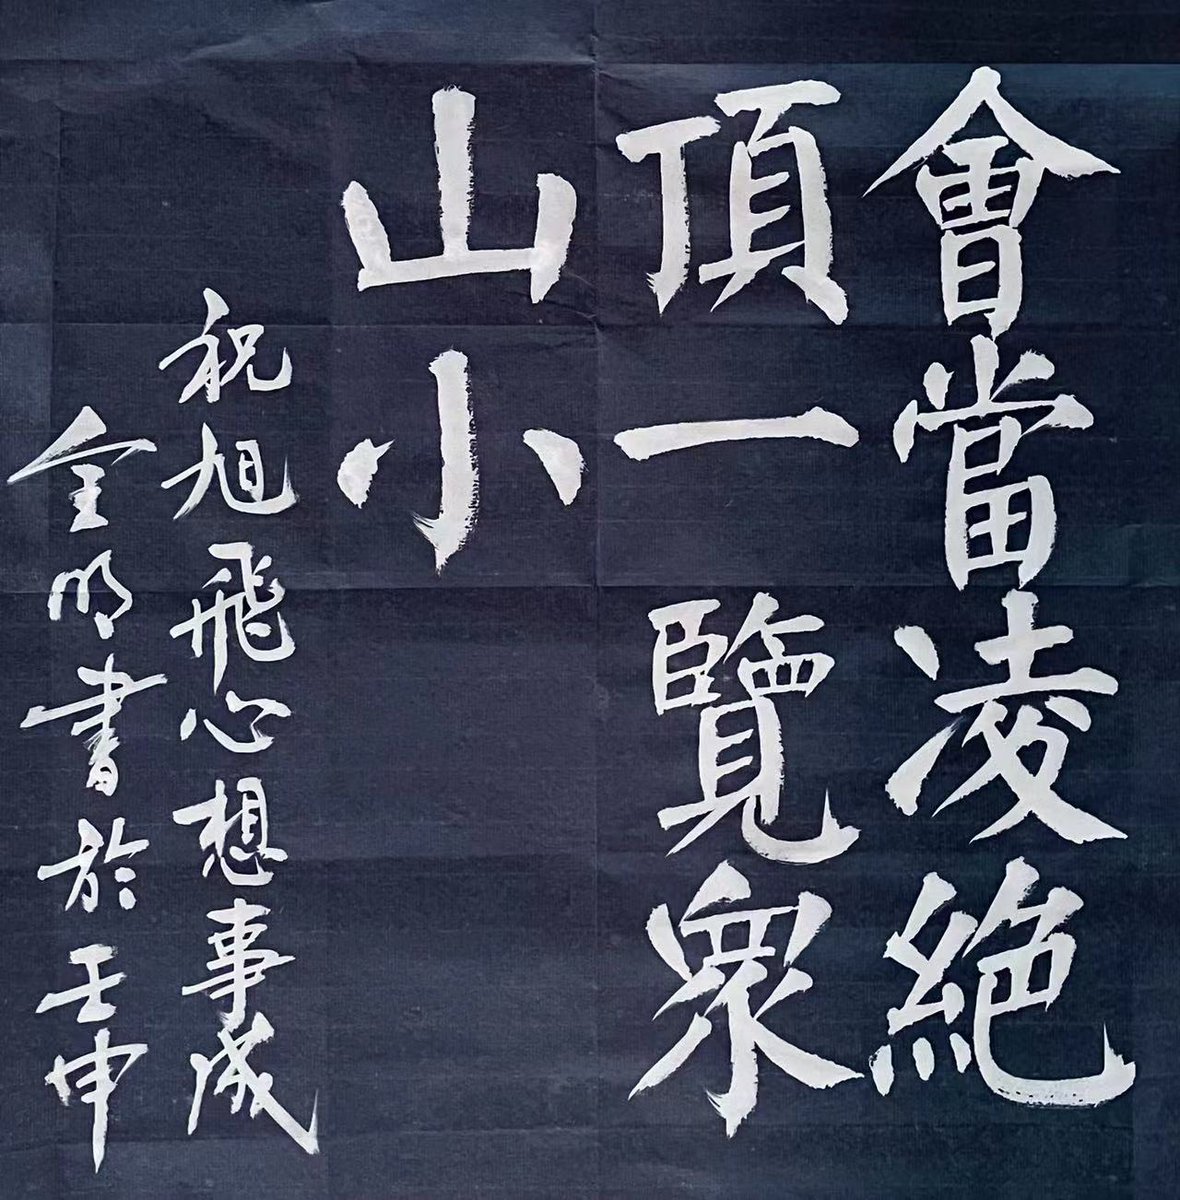 會當凌絕
頂一覽眾
山小
祝旭飛心想事成
全明書於壬申